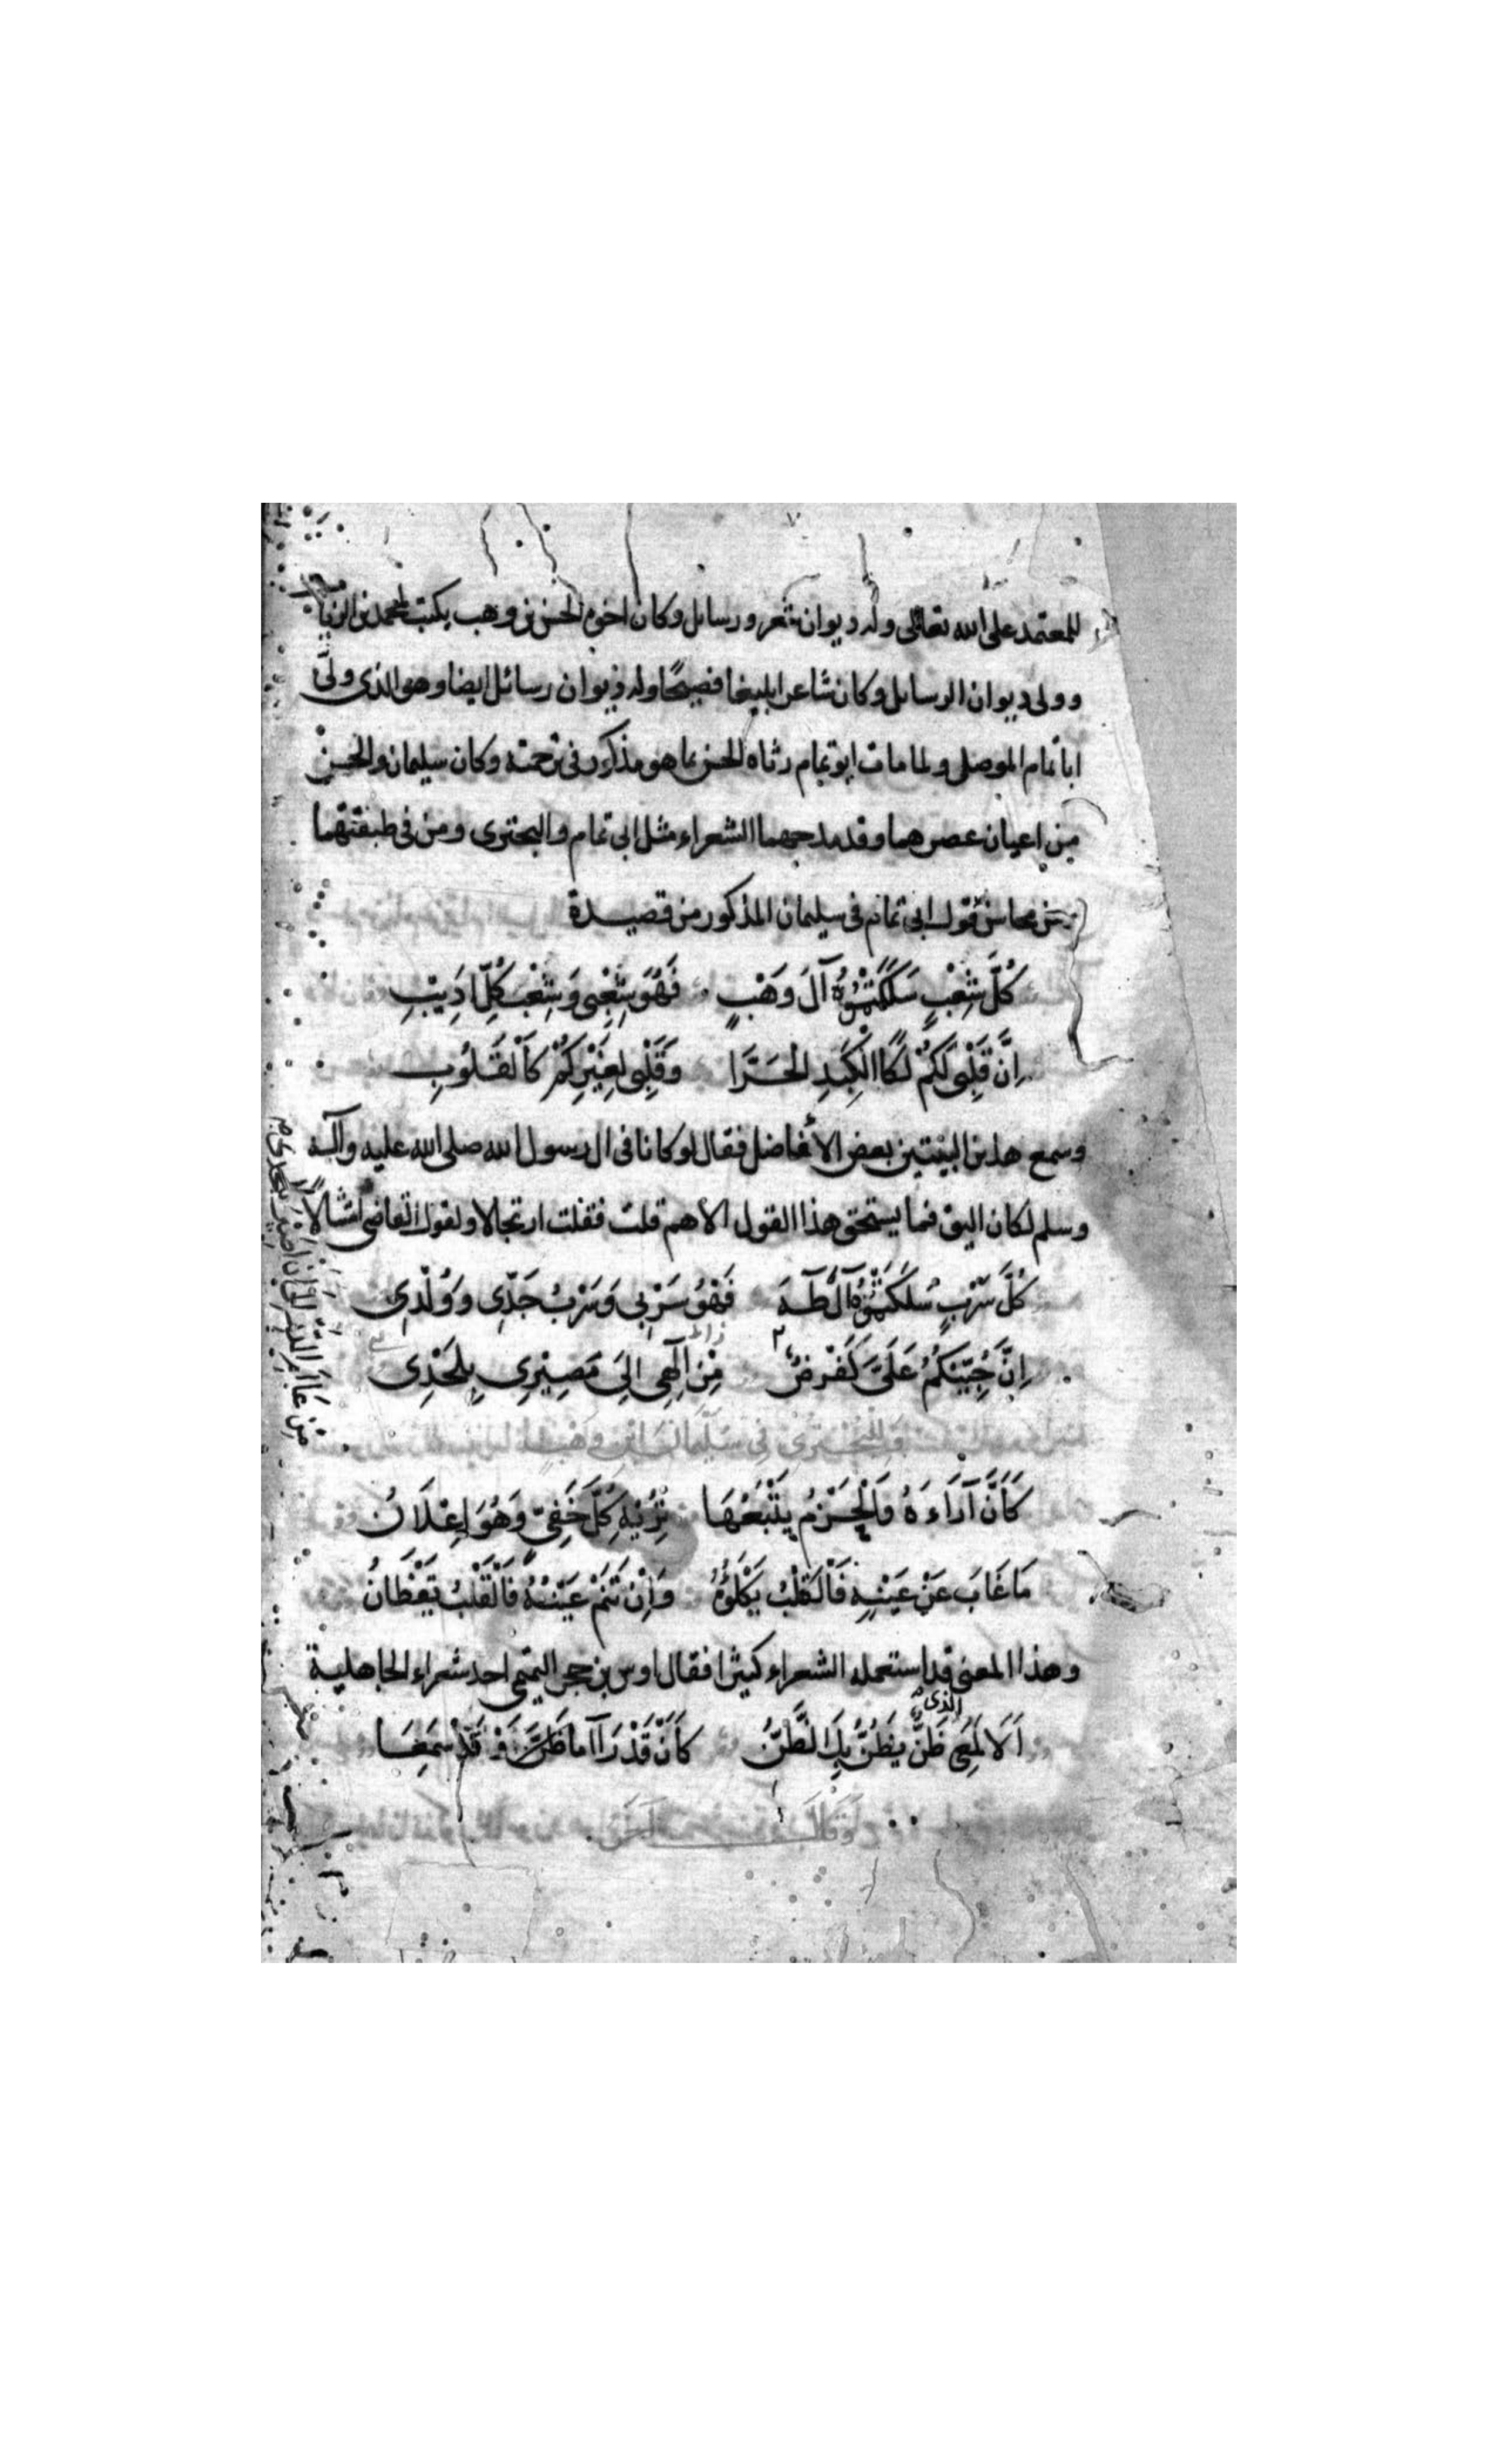 للمعتمد على الله تعالى وله ديوان شعر ورسائل وكان اخوه الحسن بن وهب يكتب لمحمد بن الزيات
وولى ديوان الرسائل وكان شاعرا بليغا فصيحًا وله ديوان رسائل ايضا وهو الذى ولَّى
ابا تمام الموصل ولما مات ابو تمام رثاه الحسن بما هو مذكور فى ترجمته وكان سليمان والحسن
من اعيان عصرهما وقد مدحهما الشعراء مثل ابى تمام والبحترى ومن فى طبقتهما
ومن محاسن قول ابى تمام فى سليمان المذكور من قصيدة
كُلُّ شِعْبٍ سَلَكْتُمُوهُ آلَ وَهْبٍ فَهُوَ شِعْبِى وَشِعْبُ كُلِّ اَدِيْبِ
اِنَّ قَلْبِى لَكُمْ لَكَا الْكَبِدِ الحَرَّا وَقَلْبِى لِغَيْرِكُمْ كَالْقُلُوبِ
وسمع هذين البيتين بعض الأفاضل فقال لو كانا فى ال رسول الله صلى الله عليه وآله
وسلم لكان اليق فما يستحق هذا القول الا هم قلت فقلت ارتجالا ولقول القاضى امتثالاً
كُلُّ سَرْبٍ سَلَكْتُمُوهُ آلَ طَهَ فَهْوُ سَرْبِى وَسَرْبُ جَدِّى وَوُلْدِى
اِنَّ حُبِّيْكُمُ عَلَىَّ كَفَرْضٍ مِنْ اِلَهِى اِلَى مَصِيْرِى بِلَحْدِى
وَلِلْبُحْتُرِىِّ فِى سُلَيْمَانَ ابْنِ وَهْبٍ
كَأَنَّ آرَاءَهُ وَالْحَزْمُ يَتْبَعُهَا تُرِيْهِ كُلَّ خَفِىٍّ وَهُوَ اِعْلَانُ
مَا غَابَ عَنْ عَيْنِهِ فَالْقَلْبُ يَكْلَؤُهُ وَاِنْ تَنَمْ عَيْنُهُ فَالْقَلْبُ يَقْظَانُ
وهذا المعنى قد استعمله الشعراء كثيرا فقال اوس بن حجر التميمى احد شعراء الجاهلية
الذى
اَلَالْمَعِى يَظُنُّ بِكَ الظَّنَّ كَأَنْ قَدْ رَآ قَدْ سَمِعَا
وَقَالَ آخَرُ